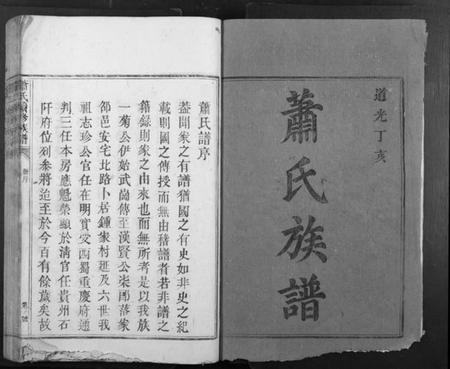 道光丁亥
蕭氏族譜
蕭氏譜序
蓋聞家之有譜猶國之有史如非史之紀
載則國之傳授而無由稽譜者若非譜之
籍錄則家之由來也而無所考是以我族
一菊公伊始武崗傳至漢賢公柒郎落業
邵邑安宅北路卜居鍾家村廷及六世我
祖志珍公官任在明實受西蜀重慶府通
判三任本房應魁榮顯於清官任貴州石
阡府位列叅將迄至於今百有餘歲矣故